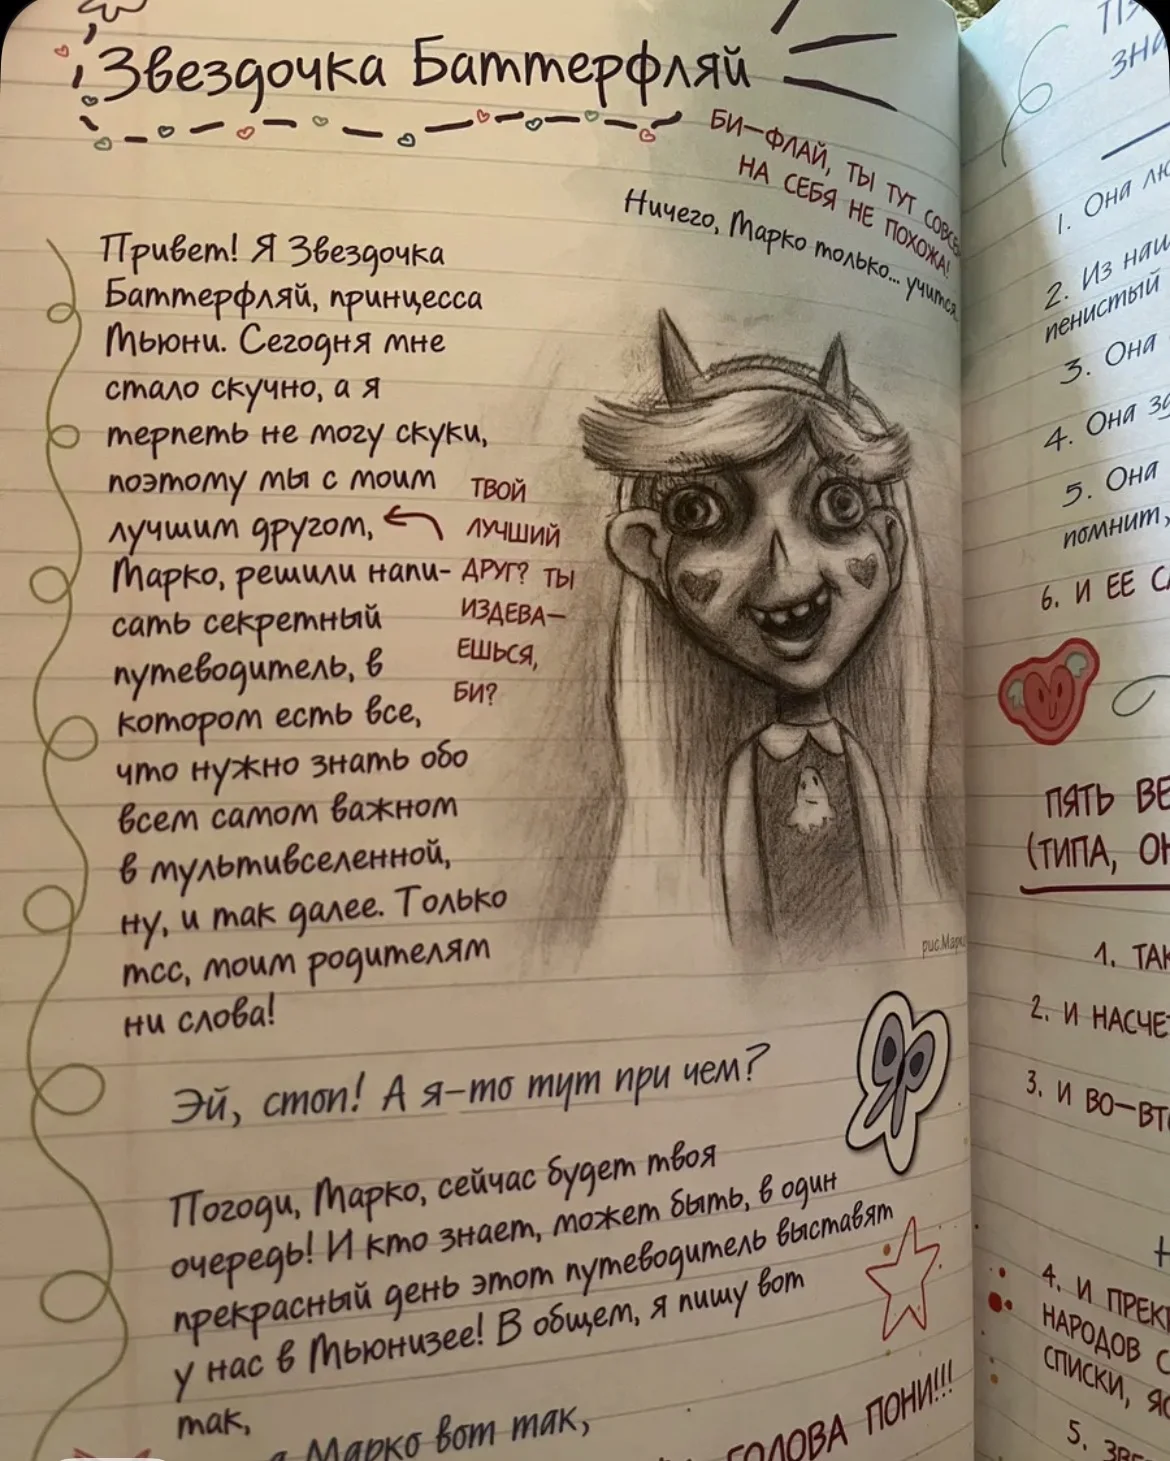 Звездочка Баттерфляй
БИ-ФЛАЙ, ТЫ ТУТ
НА СЕБЯ НЕ ПОХОЖА!
Ничего, Марко только... учится
Привет! Я Звездочка
Баттерфляй, принцесса
Мьюни. Сегодня мне
стало скучно, а я
терпеть не могу скуки,
поэтому мы с моим
лучшим другом,
Марко, решили напи-
сать секретный
путеводитель, в
котором есть все,
что нужно знать обо
всем самом важном
в мультивселенной,
ну, и так далее. Только
тсс, моим родителям
ни слова!
ТВОЙ
ЛУЧШИЙ
ДРУГ? ТЫ
ИЗДЕВА-
ЕШЬСЯ,
БИ?
рис.Марко
Эй, стоп! А я-то тут при чем?
Погоди, Марко, сейчас будет твоя
очередь! И кто знает, может быть, в один
прекрасный день этот путеводитель выставят
у нас в Мьюнизее! В общем, я пишу вот
так,
а Марко вот так,
ГОЛОВА ПОНИ!!!
1. Она
2. Из
пенистый
3. Она
4. Она
5. Она
помнит,
6. И ЕЕ
ПЯТЬ
(ТИПА,
1.
2. И НАСЧЕТ
3. И ВО-
4. И
НАРОДОВ
СПИСКИ,
5.